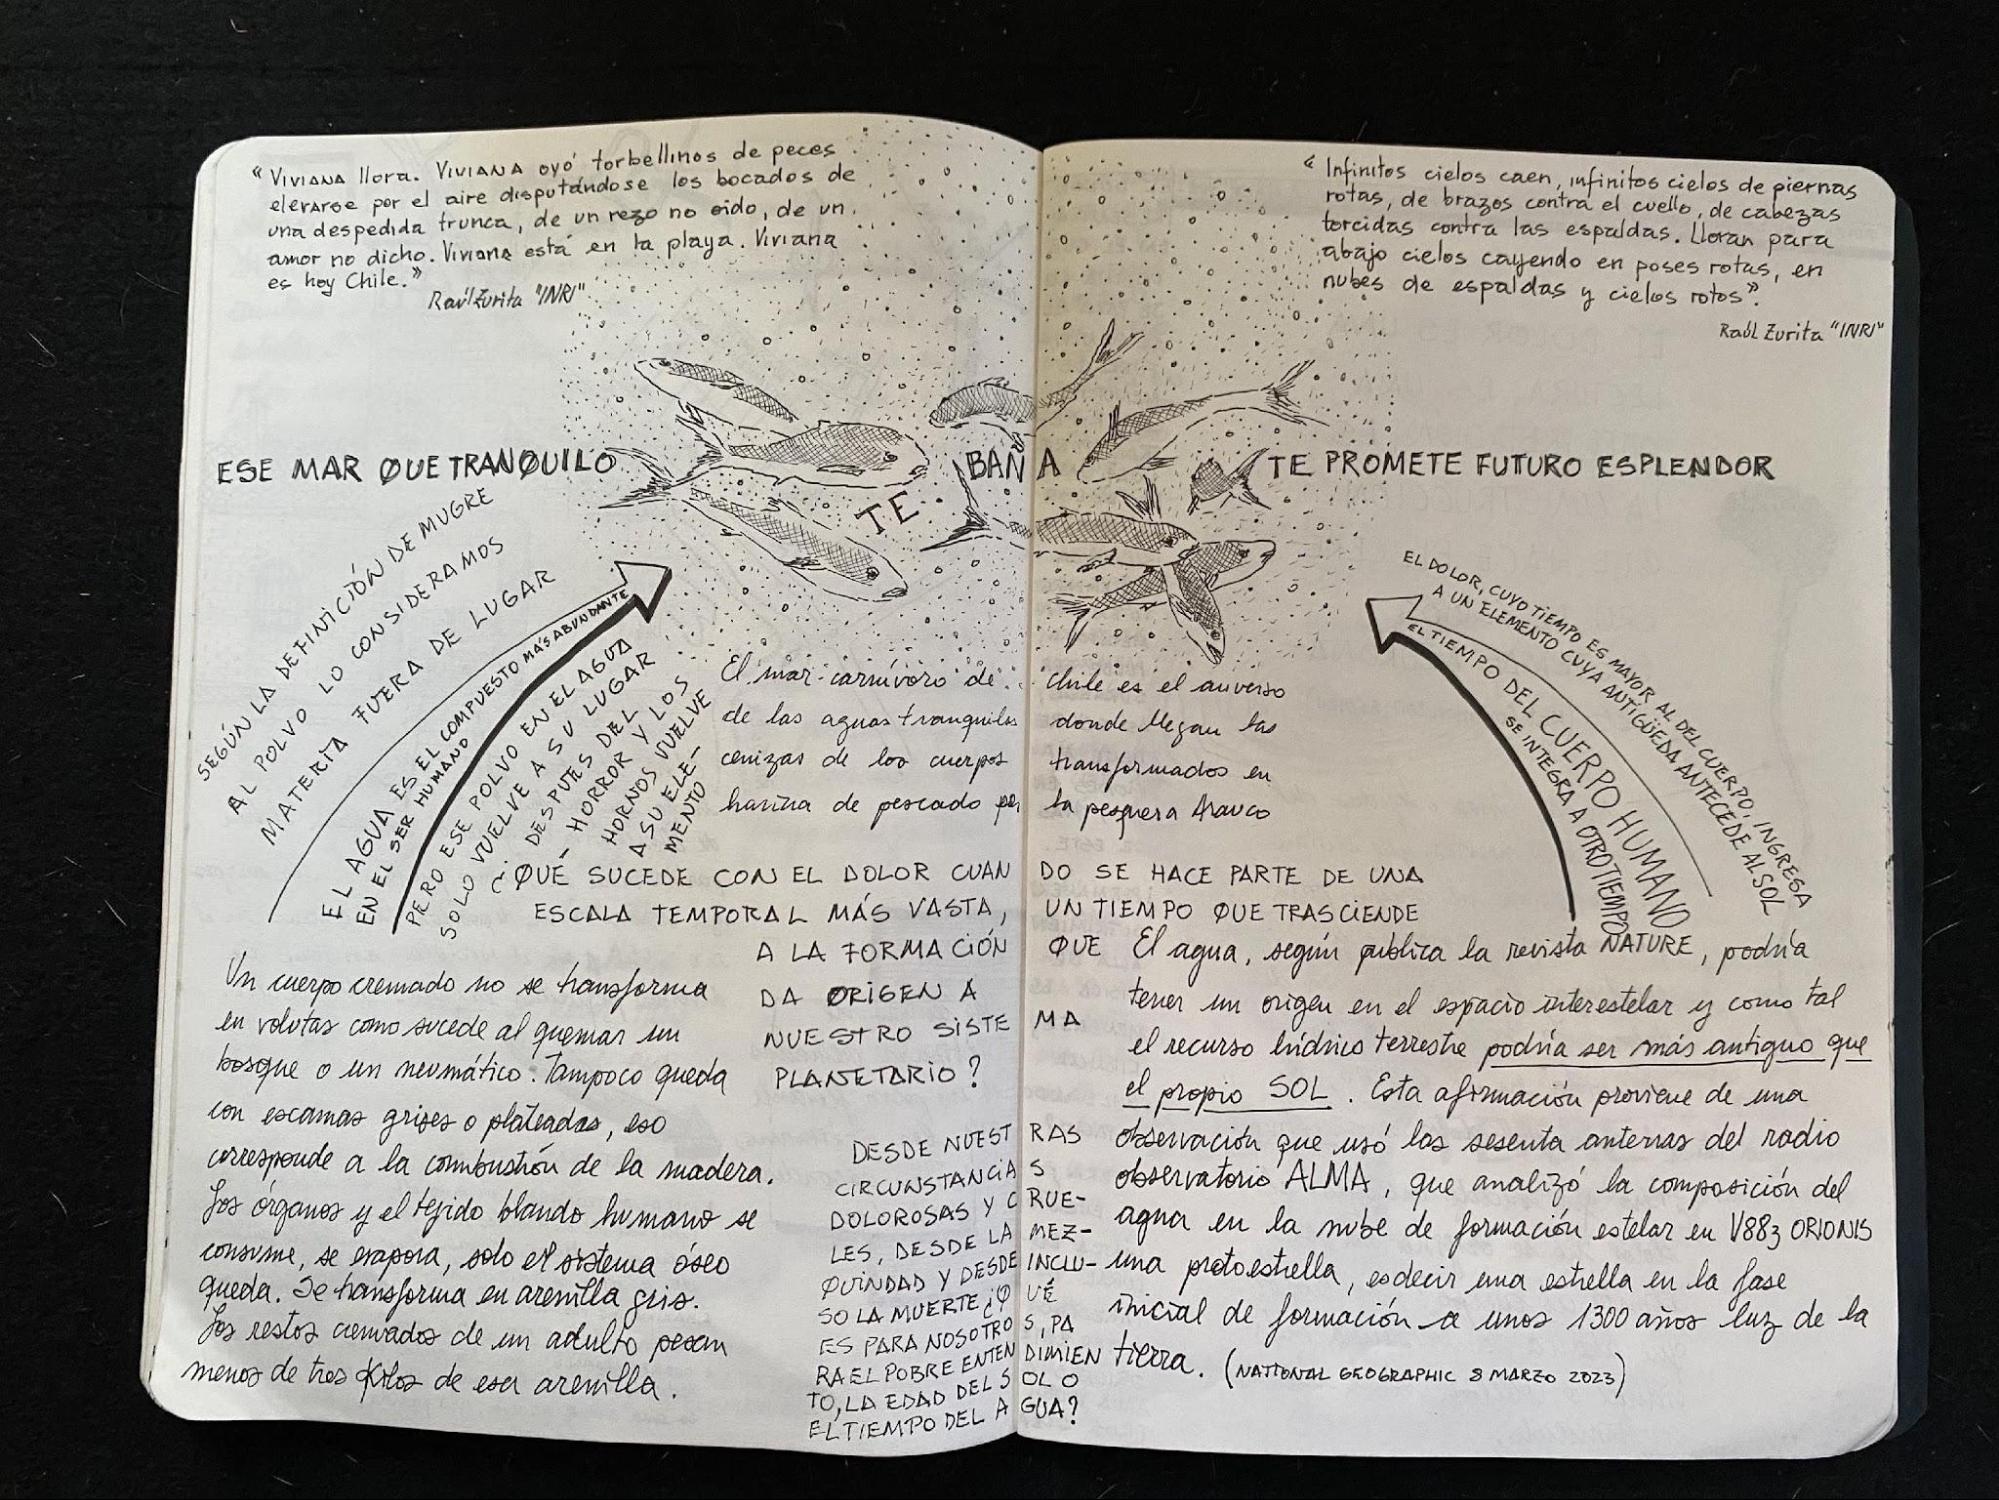 "Viviana llora. Viviana oyó torbellinos de peces
elevarse por el aire disputándose los bocados de
una despedida trunca, de un rezo no oído, de un
amor no dicho. Viviana está en la playa. Viviana
es hoy Chile."
Raúl Zurita "INRI"
"Infinitos cielos caen, infinitos cielos de piernas
rotas, de brazos contra el cuello, de cabezas
torcidas contra las espaldas. Lloran para
abajo cielos cayendo en poses rotas, en
nubes de espaldas y cielos rotos".
Raúl Zurita "INRI"
ESE MAR QUE TRANQUILO TE BAÑA TE PROMETE FUTURO ESPLENDOR
SEGÚN LA DEFINICIÓN DE MUGRE
AL POLVO LO CONSIDERAMOS
MATERIA FUERA DE LUGAR
EL AGUA ES EL COMPUESTO MÁS ABUNDANTE
EN EL SER HUMANO
PERO ESE POLVO EN EL AGUA
SOLO VUELVE A SU LUGAR
¿- DESPUÉS DEL
- HORROR Y LOS
HORNOS VUELVE
A SU ELE-
MENTO
El mar carnívoro de Chile es el anverso
de las aguas tranquilas donde llegan las
cenizas de los cuerpos transformados en
harina de pescado por la pesquera Arauco
EL DOLOR, CUYO TIEMPO ES MAYOR AL DEL CUERPO, INGRESA
A UN ELEMENTO CUYA ANTIGÜEDA ANTECEDE AL SOL
EL TIEMPO DEL CUERPO HUMANO
SE INTEGRA A OTRO TIEMPO
¿QUÉ SUCEDE CON EL DOLOR CUANDO SE HACE PARTE DE UNA
ESCALA TEMPORAL MÁS VASTA, UN TIEMPO QUE TRASCIENDE
A LA FORMACIÓN QUE
DA ORIGEN A
NUESTRO SISTEMA
PLANETARIO?
Un cuerpo cremado no se transforma
en volutas como sucede al quemar un
bosque o un neumático. Tampoco queda
con escamas grises o plateadas, eso
corresponde a la combustión de la madera.
Los órganos y el tejido blando humano se
consume, se evapora, solo el sistema óseo
queda. Se transforma en arenilla gris.
Los restos cremados de un adulto pesan
menos de tres kilos de esa arenilla.
DESDE NUESTRAS
CIRCUNSTANCIAS
DOLOROSAS Y CRUE-
LES, DESDE LA MEZ-
QUINDAD Y DESDE INCLU-
SO LA MUERTE ¿QUÉ
ES PARA NOSOTROS, PA
RA EL POBRE ENTENDIMIEN
TO, LA EDAD DEL SOL O
EL TIEMPO DEL AGUA?
El agua, según publica la revista NATURE, podría
tener un origen en el espacio interestelar y como tal
el recurso hídrico terrestre podría ser más antiguo que
el propio SOL. Esta afirmación proviene de una
observación que usó las sesenta antenas del radio
observatorio ALMA, que analizó la composición del
agua en la nube de formación estelar en V883 ORIONIS
una protoestrella, es decir una estrella en la fase
inicial de formación a unos 1300 años luz de la
tierra. (NATIONAL GEOGRAPHIC 8 MARZO 2023)